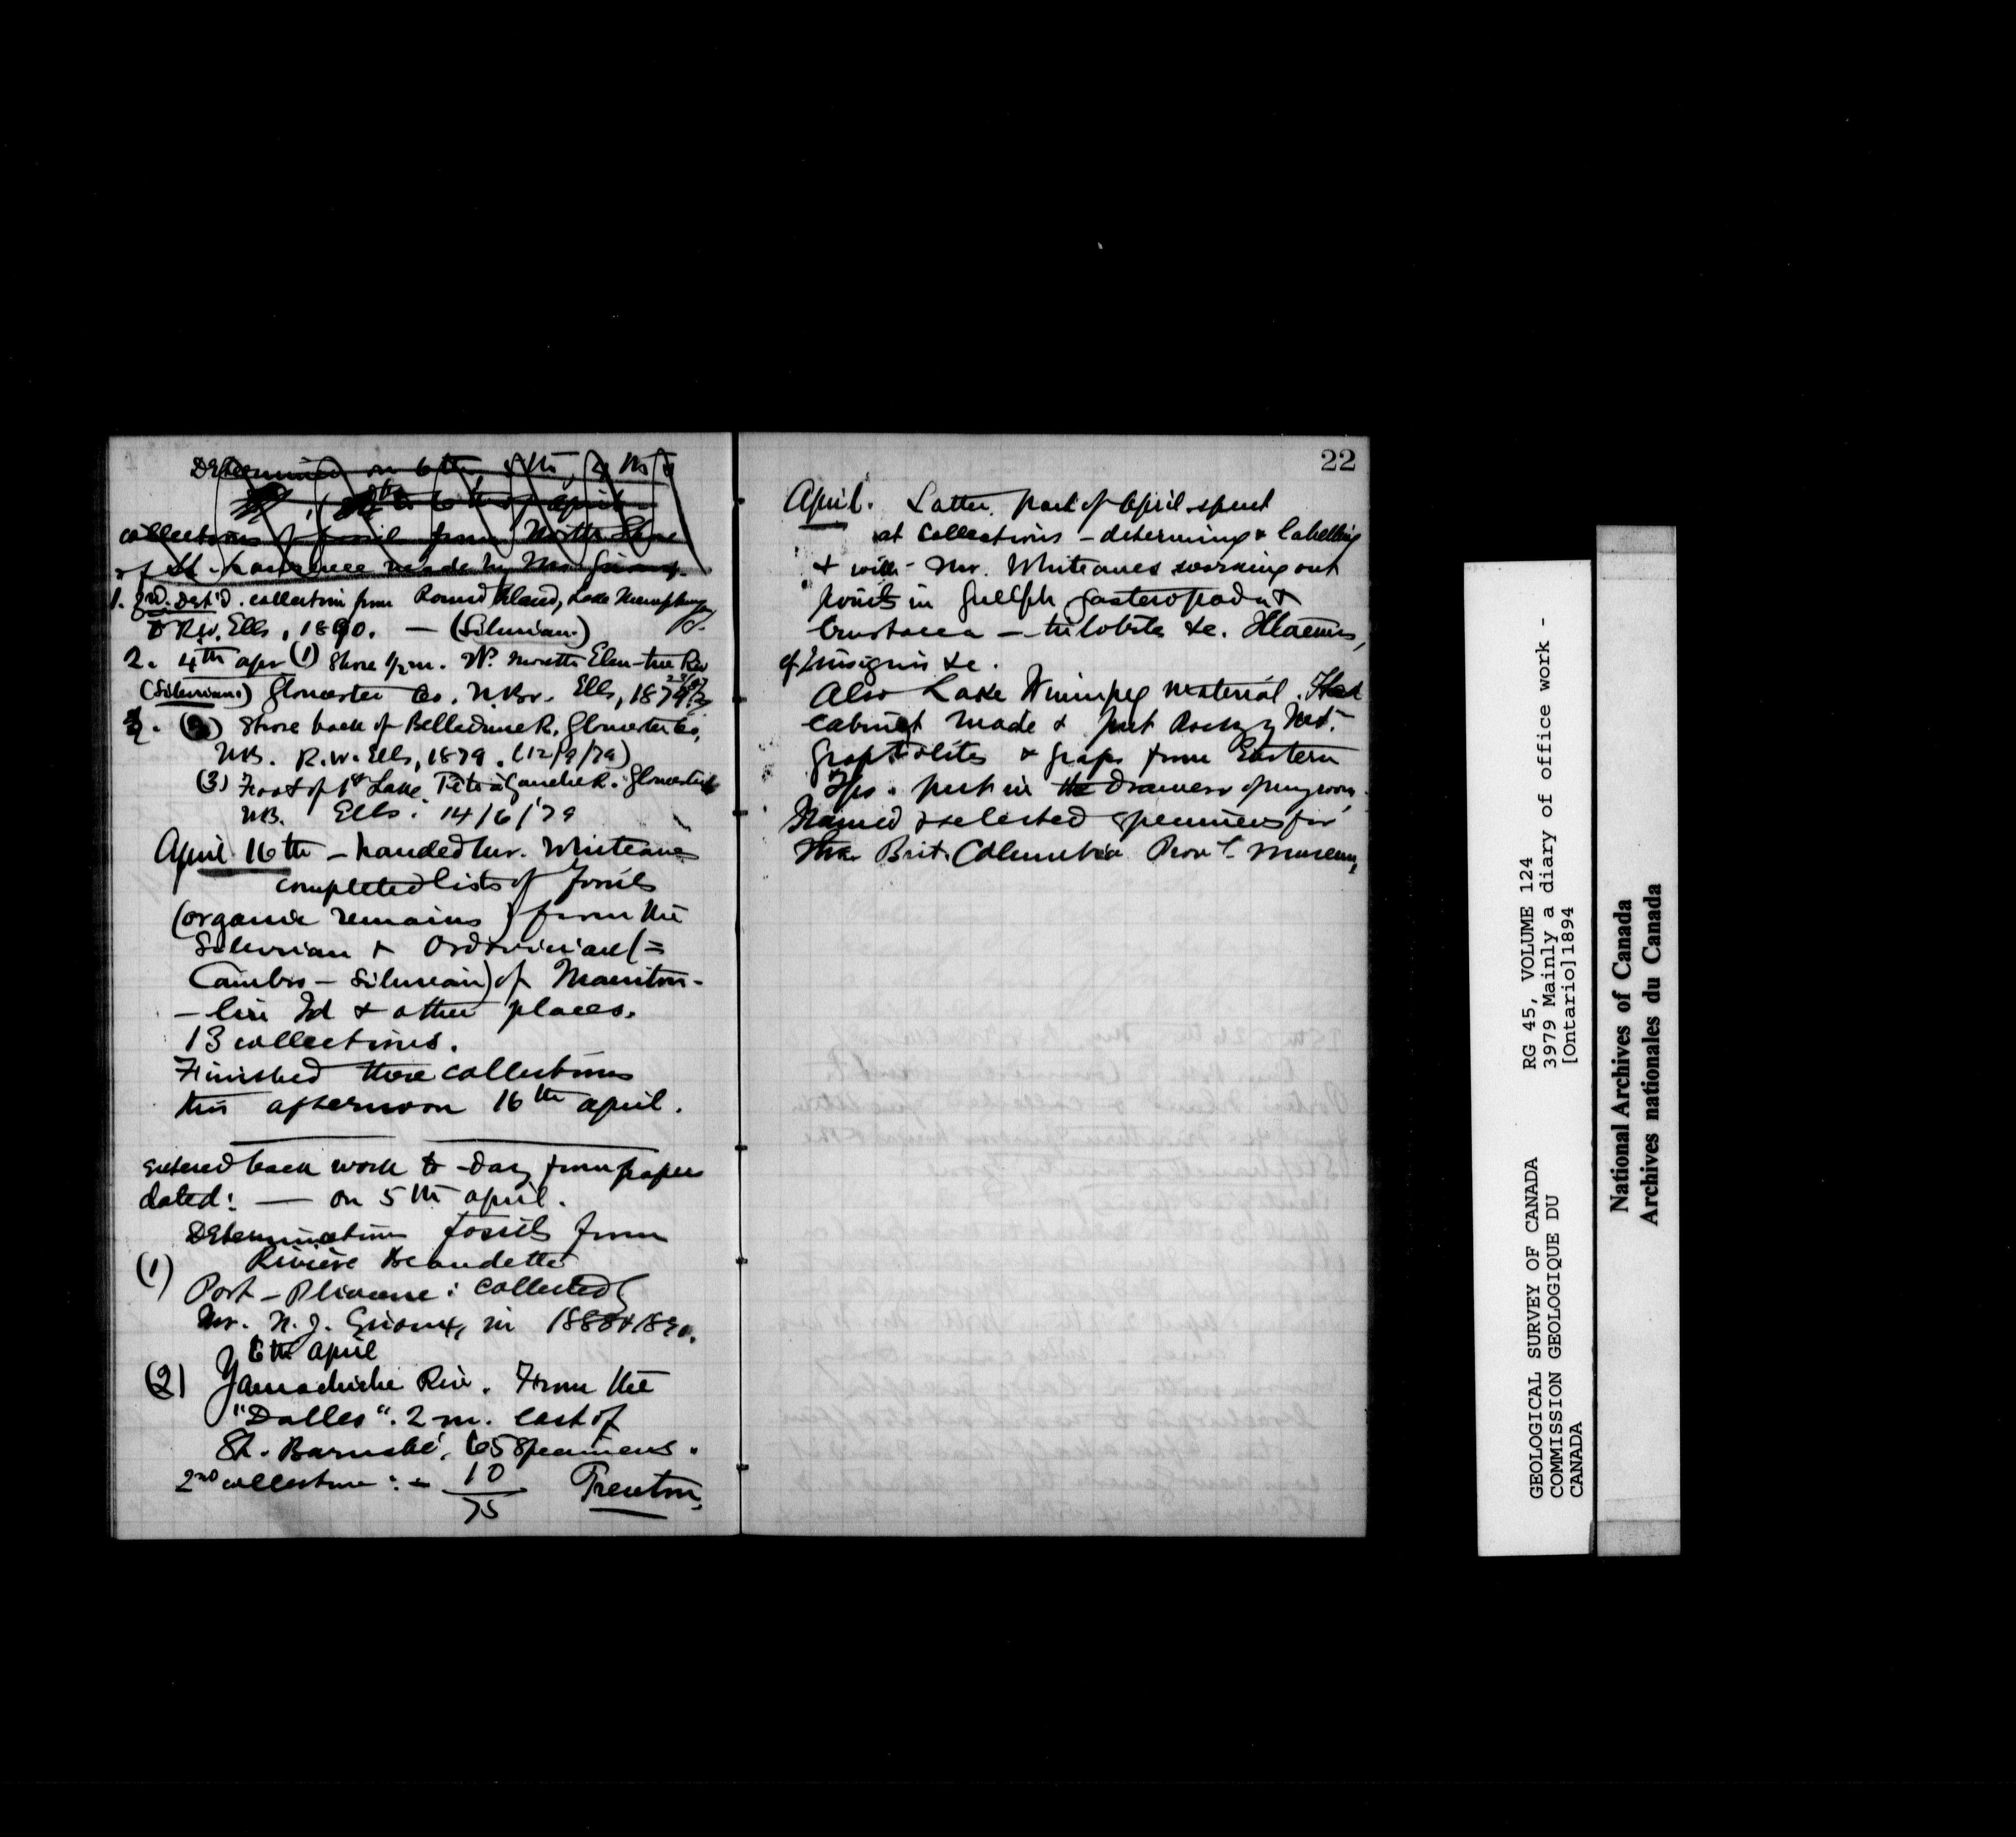 Determined on 6th
April
collections of fossils from North Shore
of St. Lawrence made by Mr. Giroux.
1. 3rd. Det'd. collection from Round Island, Lake Memphremagog
R.W. Ells, 1890. — (Silurian.)
2. 4th apr (1) Shore 1/2 m. W. mouth Elm-tree Riv
(Silurian) Gloucester Co. N. Br. Ells, 1879
(2) Shore back of Belledune R. Gloucester Co,
NB. R.W. Ells, 1879. (12/9/79)
(3) Foot of 1st Lake. Tête à Gauche R. Gloucester
NB. Ells. 14/6/79
April 16th — handed Mr. Whiteaves
completed lists of fossils
(organic remains) from the
Silurian & Ordovician (=
Cambro - Silurian) of Manitou-
- lin Id & other places.
13 collections.
Finished these collections
this afternoon 16th april.
Entered back work to-day from papers
dated: — on 5th april.
Determination fossils from
(1) Rivière Beaudette
Post - Pliocene: collected by
Mr. N. J. Giroux, in 1888 & 1890.
6th april
(2) Yamachiche Riv. From the
"Dalles". 2 m. east of
St. Barnabé, 65 specimens.
2nd collection: - 10 Trenton,
75
22
April. Latter part of April spent
at collections - determining & labelling
& with Mr. Whiteaves working out
points in Guelph gasteropoda &
Crustacea — trilobites &c. Illaenus,
cf insignis &c.
Also Lake Winnipeg material. Had
cabinet made & put Rocky Mt.
Graptolites & graps from Eastern
Tps. put in the drawers of my room.
Named & selected specimens for
the Brit. Columbia Prov'l. Museum,
GEOLOGICAL SURVEY OF CANADA
COMMISSION GEOLOGIQUE DU
CANADA
RG 45, VOLUME 124
3979 Mainly a diary of office work -
[Ontario]1894
National Archives of Canada
Archives nationales du Canada